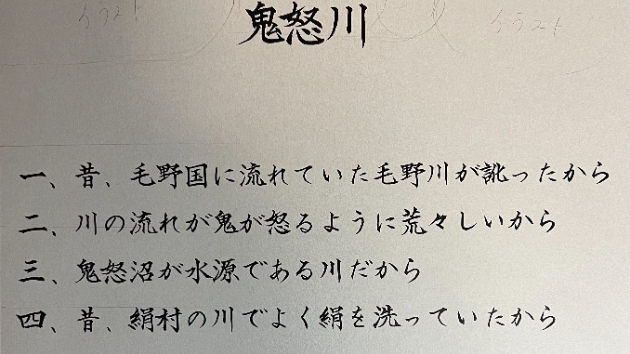 イラスト イラスト
鬼怒川
一、昔、毛野国に流れていた毛野川が訛ったから
二、川の流れが鬼が怒るように荒々しいから
三、鬼怒沼が水源である川だから
四、昔、絹村の川でよく絹を洗っていたから